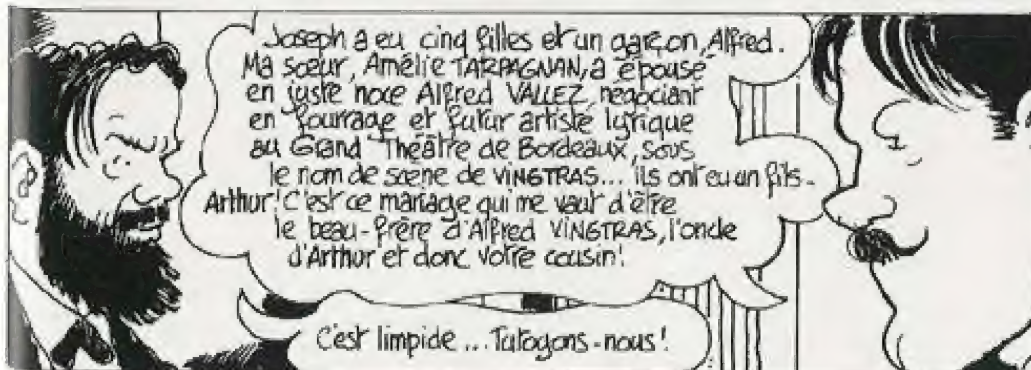 Joseph a eu cinq filles et un garçon, Alfred.
Ma sœur, Amélie TARPAGNAN, a épousé
en juste noce Alfred VALLEZ, négociant
en fourrage et futur artiste lyrique
au Grand Théâtre de Bordeaux, sous
le nom de scène de VINGTRAS... ils ont eu un fils -
Arthur! C'est ce mariage qui me vaut d'être
le beau-frère d'Alfred VINGTRAS, l'oncle
d'Arthur et donc votre cousin!
C'est limpide... Tutoyons-nous!